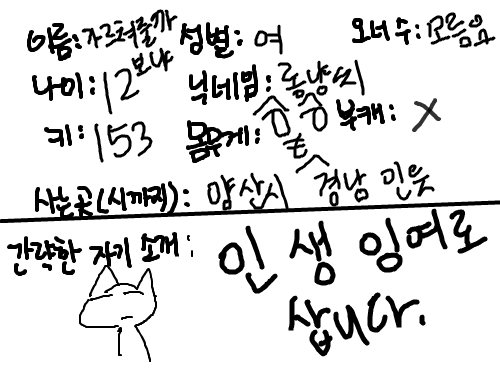 이름: 자르쳐줄까보냐 성별: 여 오너 수: 모름요
나이: 12 닉네임: 롬냥씨
키: 153 몸무게: 부캐: X
사는곳(시까지): 양산시 경남
간략한 자기 소개: 인생 잉여로
삽니다.